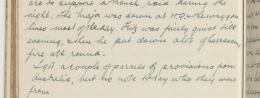 are to support a French raid during the
night. The Major was down at H.Q. & the waggon
lines most of the day. Fritz was fairly quiet till
evening, when he put down a lot of harassing
fire all round.
I got a couple of parcels of provisions from
Australia, but no note to say who they were
from.